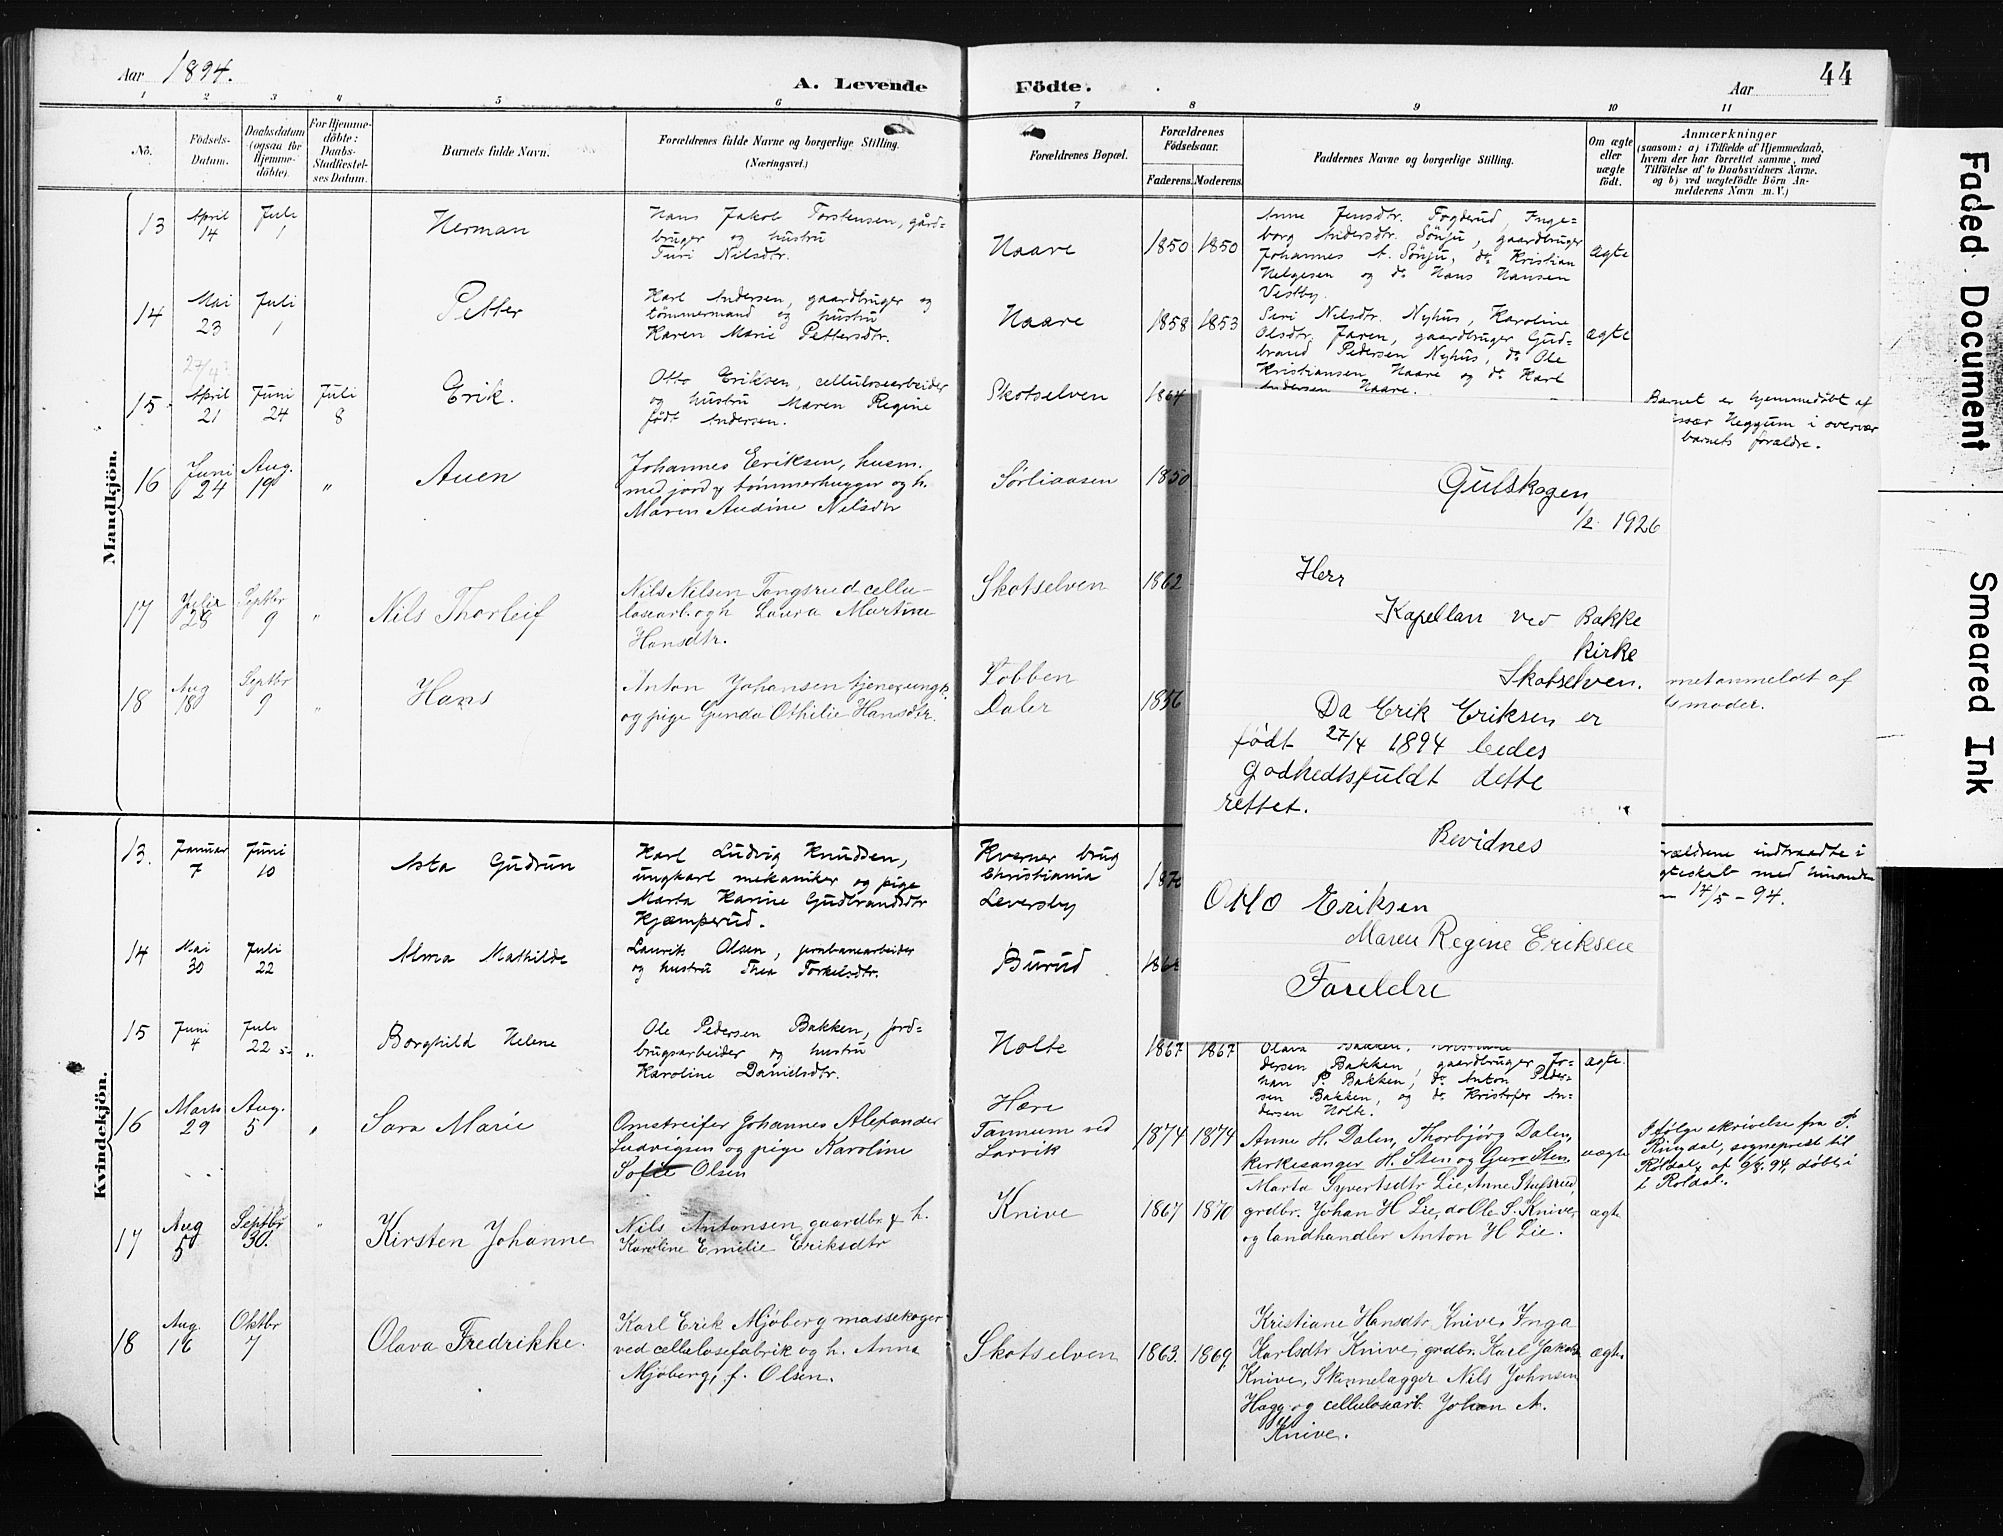 Aar 1894.
A. Levende Födte.
Aar
44
1 2 3 4 5 6 7 8 9 10 11
No.
Födsels-Datum.
Daabsdatum (ogsaa for Hjemme-döbte).
For Hjemme-döbte: Daabs-Stadfæstel-ses Datum.
Barnets fulde Navn.
Forældrenes fulde Navne og borgerlige Stilling. (Næringsvei.)
Forældrenes Bopæl.
Forældrenes Födselsaar.
Faderens. Moderens.
Faddernes Navne og borgerlige Stilling.
Om ægte eller uægte födt.
Anmærkninger
(saasom: a) i Tilfælde af Hjemmedaab,
hvem der har forrettet samme, med
Tilföielse af to Daabsvidners Navne.
og b) ved uægtefödte Börn An-
melderens Navn m. V.)
Mandkjön.
13 April 14 Juli 1 Herman
Hans Jakob Torstensen, gård-
bruger og hustru
Turi Nilsdtr.
Haare 1850 1850
Anne Jensdtr. Fogderud, Inge-
borg Andersdtr. Sönju, gaardbruger
Johannes A. Sönju, do Kristian
Helgesen og do Hans Hansen
Vestby.
ægte
14 Mai 23 Juli 1 Petter
Karl Andersen, gaardbruger og
tömmermand og hustru
Karen Marie Pettersdtr.
Haare 1858 1853
Siri Nilsdtr. Nyhus, Karoline
Olsdtr. Jaren, gaardbruger Gud-
brand Pedersen Nyhus, do Ole
Kristiansen Haare og do Karl
Andersen Haare.
ægte
27/4
15 April 21 Juni 24 Juli 8 Erik.
Otto Eriksen, cellulosearbeider
og hustru Maren Regine
født Andersen.
Skotselven 1864
Barnet er hjemmedöbt af
Heggum i overvær
barnets forældre.
16 Juni 24 Aug. 19 " Auen
Johannes Eriksen, husm.
med jord og tømmerhugger og h.
Maren Andine Nilsdtr
Sørliaasen 1850
17 Julia 28 Septbr 9 " Nils Thorleif
Nils Nilsen Tangsrud cellu-
losearb. og h Laura Martine
Hansdtr.
Skotselven 1862
18 Aug 18 Septbr 9 " Hans
Anton Johansen tjener ungk.
og pige Gunda Othilie Hansdtr.
Vobben
Daler 1856
metanmeldt af
moder.
Gulskogen
1/2 1926
Herr
Kapellan ved Bakke
kirke
Skotselven.
Da Erik Eriksen er
født 27/4 1894 bedes
godhedtsfuldt dette
rettet.
Bevidnes
Otto Eriksen
Maren Regine Eriksen
Foreldre
Kvindekjön.
13. Januar 7 Juni 10 Asta Gudrun
Karl Ludvig Knudsen,
ungkarl mekaniker og pige
Marta Karine Gudbrandsdtr
Kjæmperud.
Kverner brug
Christiania
Leversby
rældrene indtraadte i
gteskab med hinanden
14/5 - 94.
14 Mai 30 Juli 22 Alma Mathilde
Laurits Olsen, jernbanearbeider
og hustru Thea Torkelsdtr.
Burud
15 Juni 4 Juli 22 " Borghild Helene
Ole Pedersen Bakken, jord-
brugsarbeider og hustru
Karoline Danielsdtr.
Holte 1867 1867
Olava Bakken, Kristiane
dersen Bakken, gaardbruger Jo-
han P. Bakken, do Anton Peder-
sen Bakken, og do Kristofer An-
dersen Holte.
ægte
16 Marts 29 Aug. 5 " Sara Marie
Omstreifer Johannes Alexander
Ludvigsen og pige Karoline
Sofie Olsen
Hære
Tannum ved
Larvik 1874 1874
Anne H. Dalen, Thorbjørg Dalen,
kirkesanger H. Sten og Guro Sten.
uægte
Ifølge skrivelse fra P.
Ringdal, sogneprest til
Röldal, af 9/8. 94, döbt i
i Roldal.
17 Aug 5 Septbr 30. " Kirsten Johanne
Nils Antonsen gaardbr. & h.
Karoline Emilie Eriksdtr
Knive 1867 1870
Marta Syvertsdtr Lie, Anne Stufsrud,
grdbr. Johan H Lie, do Ole S. Knive,
og landhandler Anton H Lie.
ægte
18 Aug. 16 Oktbr 7 Olava Fredrikke.
Karl Erik Mjöberg massekoger
ved cellulosefabrik og h. Anna
Mjöberg, f. Olsen.
Skotselven 1863. 1869
Kristiane Hansdtr Knive, Inga
Karlsdtr Knive, grdbr. Karl Jakobs
Knive, Skinnelægger Nils Johnsen
Hagg og cellulosearb. Johan A.
Knive.
ægte
Faded Document
Smeared Ink